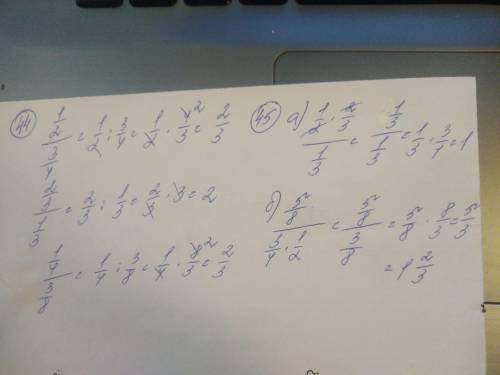 44 (1/2)/(3/4) = 1/2 : 3/4 = 1/2 · 4/3 = 2/3
(2/3)/(1/3) = 2/3 : 1/3 = 2/3 · 3 = 2
(1/4)/(3/8) = 1/4 : 3/8 = 1/4 · 8/3 = 2/3
45 а) (1/2 · 2/3)/(1/3) = (1/3)/(1/3) = 1/3 · 3/1 = 1
б) (5/8)/(3/4 · 1/2) = (5/8)/(3/8) = 5/8 · 8/3 = 5/3
= 1 2/3